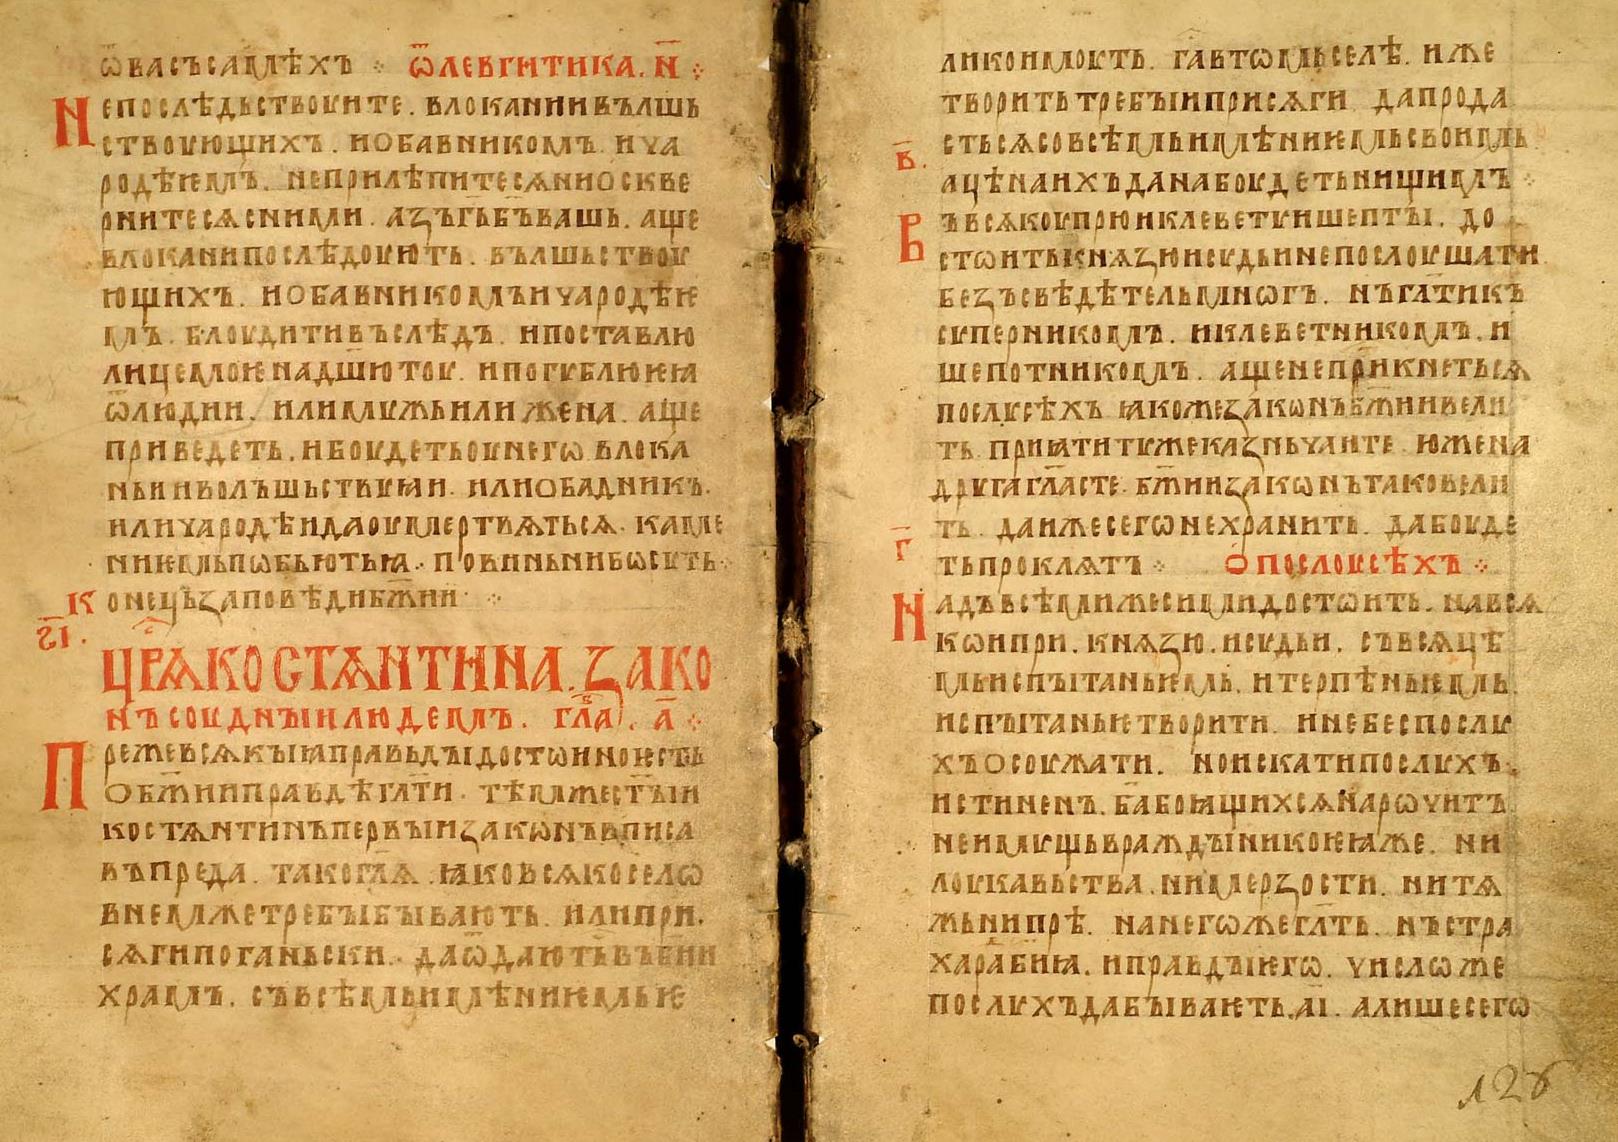 ѿвасъсамѣхъ ⁘ ѿлевгитика. н҃ ⁘
Непослѣдьствоуите. влъкании вълшь
ствоующихъ. иобавникомъ. ича
родѣꙗмъ. неприлѣпитесѧниоскве
рнитесѧсними. азъг҃ьб҃ъвашь. аще
влъканипослѣдоують. вълшьствоу
ющихъ. иобавникомъичародѣѥ
мъ. блоудитивъслѣдъ. ипоставлю
лицемоѥнадш҃ютоу. ипогублююꙗ
ѿлюдии. илимужьилижена. аще
приведеть. ибоудетьоунегѡ влъкл
ньиволъшьствуꙗи. илиобадникъ.
иличародѣидаоумертвѧтьсѧ. каме
ниѥмьпѡбьютьꙗ. повиньнибѡсуть.
Конецьзаповѣдиб҃жии ⁘
г҃і.
ЦР҃ѦКОСТѦНТИНА. ЗАКО
нъсоудныилюдемъ. гла҃в. а҃ ⁘
Прежевсѧкыꙗправьдыдостѡиноѥсть
об҃жииправдѣгл҃ти. тѣмжест҃ыи
костѧнтинъпервыизаконъвписа
въпреда. такогл҃ѧ. ꙗковсѧкоселѡ
внемжетребыбывають. илипри.
сѧгипоганьски. даѿдаютьвъб҃ии
храмъ. съвсѣмьимѣниѥмьѥ
ликоимоуть. гавтѡмьселѣ. иже
творитьтребыиприсѧги дапрода
стьсѧсовсѣмьимѣниѥмьсвоимь
в҃.
ацѣнаихъданабоудетьнищимъ ⁘
Въвсѧкоупрюиклеветуишепты. до
стѡитькнѧзюисудьинепослоушати
безъсвѣдѣтельмногъ. нъгл҃тикъ
суперникомъ. иклеветникомъ. и
шепотникомъ. ащенеприкнетьсѧ
послусѣхъ ꙗкожезаконъб҃жиивели
ть. приꙗтитужеказньчаите юженa
другагл҃асте. б҃жиизаконътаковели
ть. даижесегѡнехранить. дабоуде
г҃
тьпроклѧтъ ⁘ Опослоусѣхъ ⁘
Надъвсѣмижесимидостѡить. навсѧ
кѡипри. кнѧзю. исудьи. съвсѧцѣ
мьиспытаньѥмь. итерпѣньѥмь.
испытаньѥтворити. инебеспослу
хъосоужати. ноискатипослухъ.
истиненъ. б҃абоꙗщихсѧнарѡчитъ
неимущьвражъдыникоѥꙗже. ни
лоукавьства. нимерзости. нитѧ
жьнипрѣ. нанегѡжегл҃ть. нъстра
харадиб҃иꙗ. иправдыѥгѡ. числѡже
послухъдабываѥть. аі҃. алишесегѡ
128